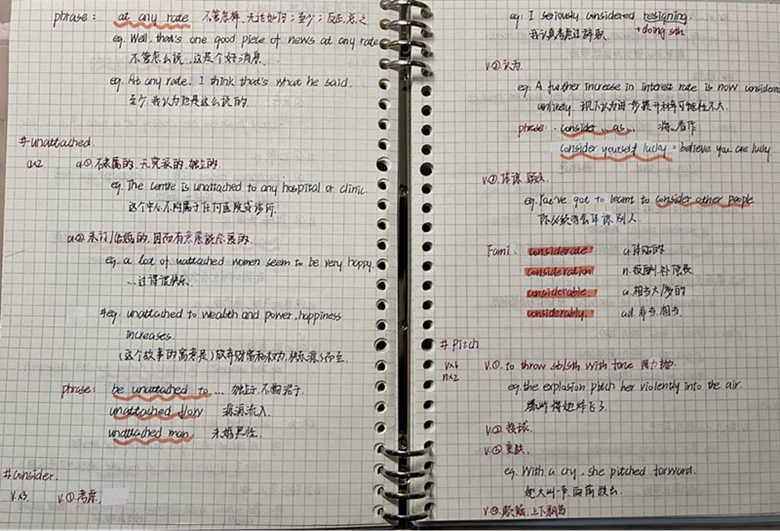 phrase: at any rate 不管怎样,无论如何;至少;反正,总之
eg. Well, that's one good piece of news at any rate
不管怎么说,这是个好消息.
eg. At any rate, I think that's what he said.
至少,我认为他是这么说的.
#unattached.
a×2 a①.不隶属的.无关系的.独立的
eg. The centre is unattached to any hospital or clinic.
这个中心不附属于任何医院或诊所.
a②未订/结婚的.
eg. a lot of unattached women seem to be very happy.
...过得很快乐.
eg: unattached to wealth and power, happiness
increases.
(这个故事的寓意是)放弃财富和权力,快乐
phrase: be unattached to ... 独立于
unattached glory
unattached man 未婚男性.
#consider.
v.×3 v.①.考虑.
eg. I seriously considered resigning.
我认真考虑过辞职. +doing sth
v.②.认为
eg. A further increase in interest rate is now considered
unlikely. 现在认为进一步提升利率可能性不大.
phrase: consider ... as ... 将..看作
consider yourself lucky = believe you are lucky
v.③.体谅.
eg. You've got to learnt to consider other people
你必须得学会体谅别人.
Fami: considerate a.体贴的
consideration n.报酬.
considerable a.相当大/多的
considerably. ad.非常.相当.
#Pitch
v×6 v.①. to throw sb/sth with force 用力抛.
n×2 eg. the explosion pitch her violently into the air.
爆炸得她炸飞了.
v.②.投球.
v.③.重跌
eg. With a cry, she pitched forward.
她大叫一声,向前跌去.
v.④.颠簸.上下